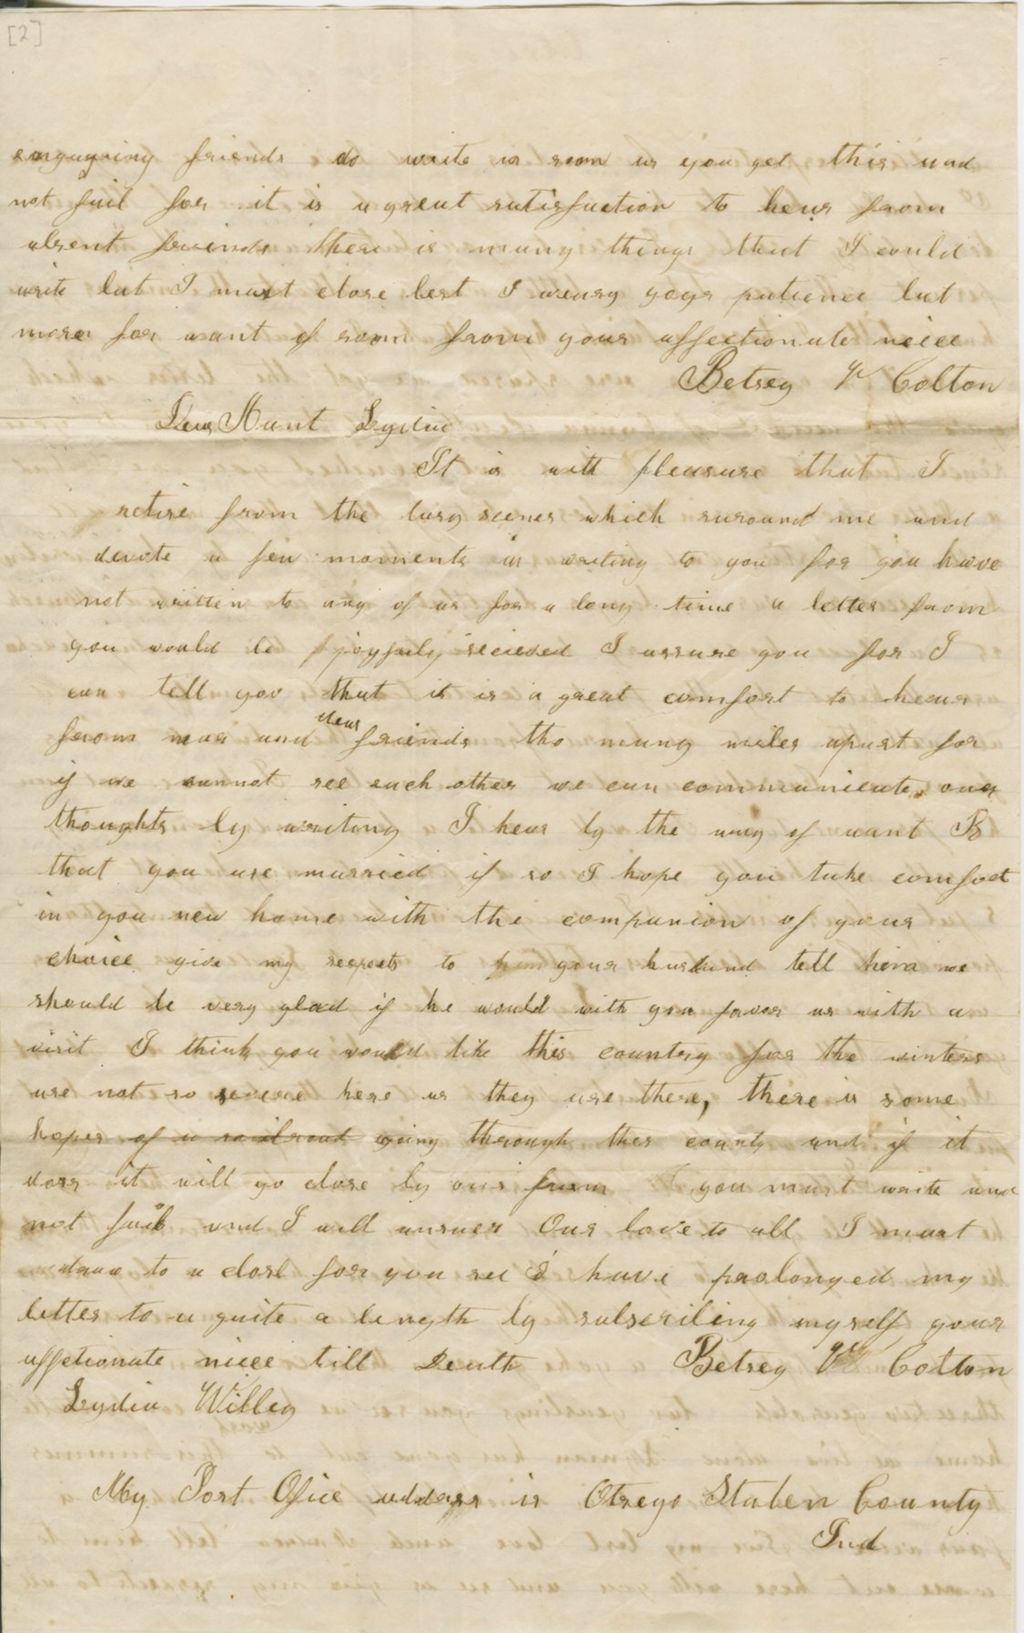 [2]
enquiring friends do write as soon as you get this and
not fail for it is a great satisfaction to hear from
absent freinds there is many things that I could
write but I must close lest I weary your patience but
more for want of room from your affectionate neice
Betsey Colton
Dear Aunt Lydia
It is with pleasure that I
retire from the busy scenes which suround me and
devote a few moments in writing to you for you have
not written to any of us for a long time a letter from
you would be joyfuly recieved I assure you for I
can tell you that it is a great comfort to hear
from near and dear friends tho many miles apart for
if we cannot see each other we can communicate our
thoughts by writing I hear by the way of aunt B
that you are married if so I hope you take comfort
in you new home with the companion of your
choice give my respects to your husband tell him we
should be very glad if he would with you favor us with a
visit I think you would like this country for the winters
are not so severe here as they are there, there is some
hopes of a railroad going through this county and if it
does it will go close by our farm you must write and
not fail and I will answer Our love to all I must
draw to a close for you see I have prolonged my
letter to a quite a length by subscribing myself your
affetionate niece till Death Betsey Colton
Lydia Willey
My Post Ofice address is Otsego Stuben County
Ind